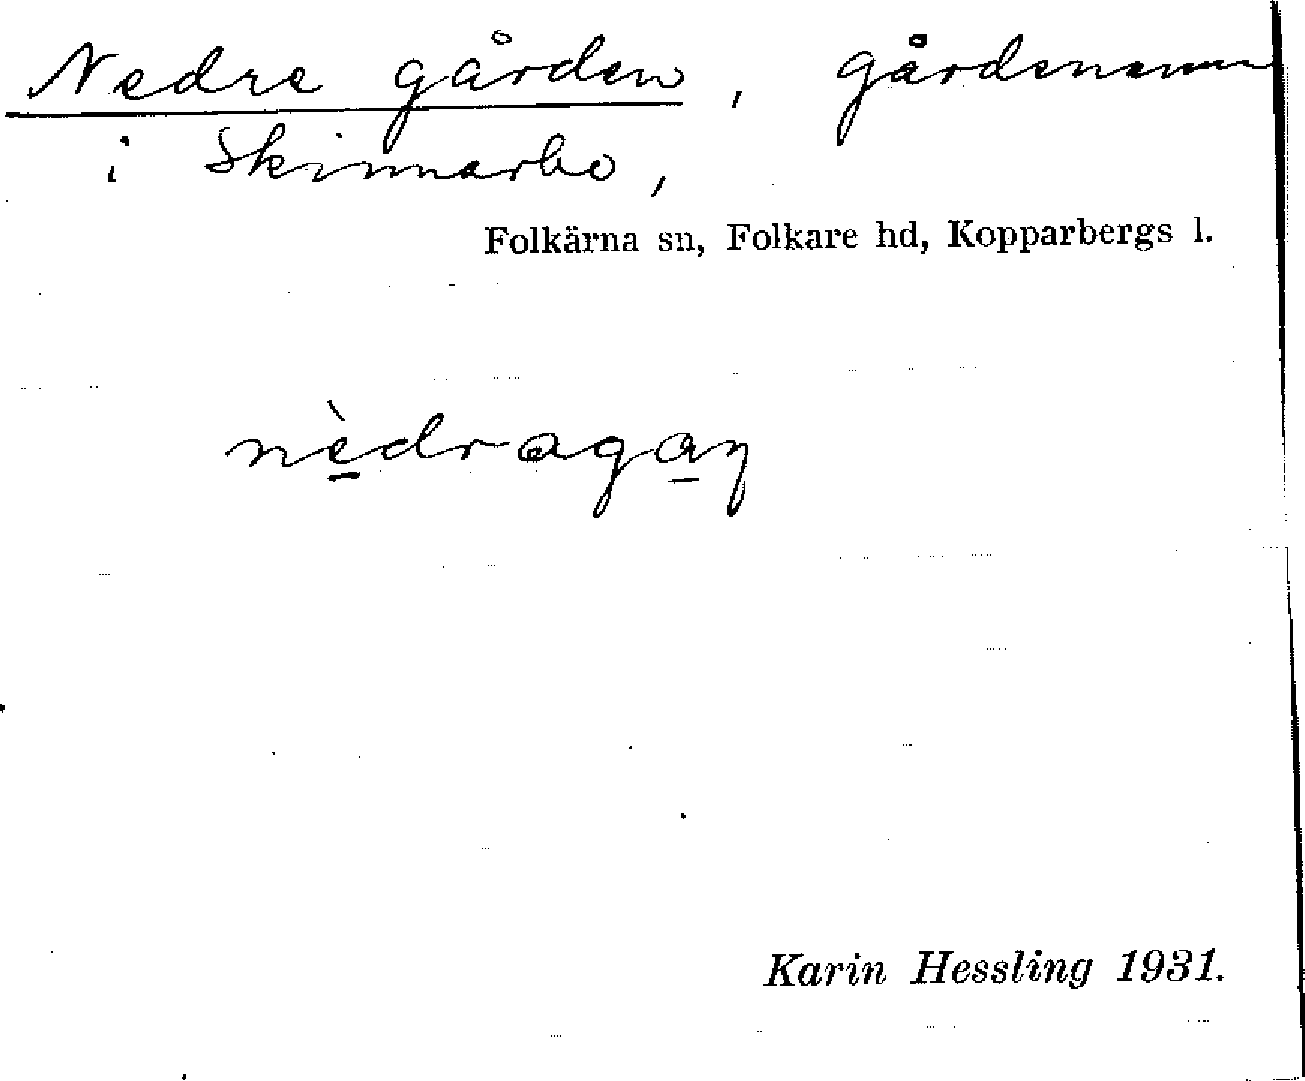 Nedre gården, gårdsnamn
i Skinnarbo,
Folkärna sn, Folkare hd, Kopparbergs l.
nèdragaꞑ
Karin Hessling 1931.